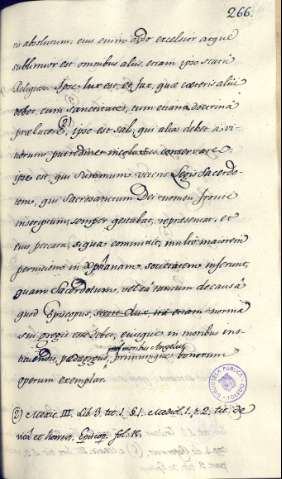 266.
ris absolutum; eius enim ordo excelsior atque
sublimior est omnibus aliis, etiam ipso statu
Religioso. Ipse lux est, et fax, quæ cæteris aliis
debet, cum sanctitate, tum etiam doctrina
prælucere; ipse est sal, qui alia debet a vi-
tiorum putredine incolumes conservare
ipse est, qui summum veteris Legis Sacerdo-
tem, qui Sacrosanctum Dei nomen fronte
insertum, semper gestabat, representat, et
eius peccata, si quæ committit, multo maiorem
perniciem in Xpĩanam societatem inferunt,
quam Sacerdotum, vel ea tantum de causa
quod Episcopus, etiam norma
sui gregis esse debet, eiusque in moribus ins-
tituendis, pedagogus, omnibus Angelus, omniumque bonorum
operum exemplar.
Lib. 3. tit. 1. § 1. p. 2. tit. de
vita et honest. Episcop. fol.
BIBLIOTECA PUBLICA
TOLEDO